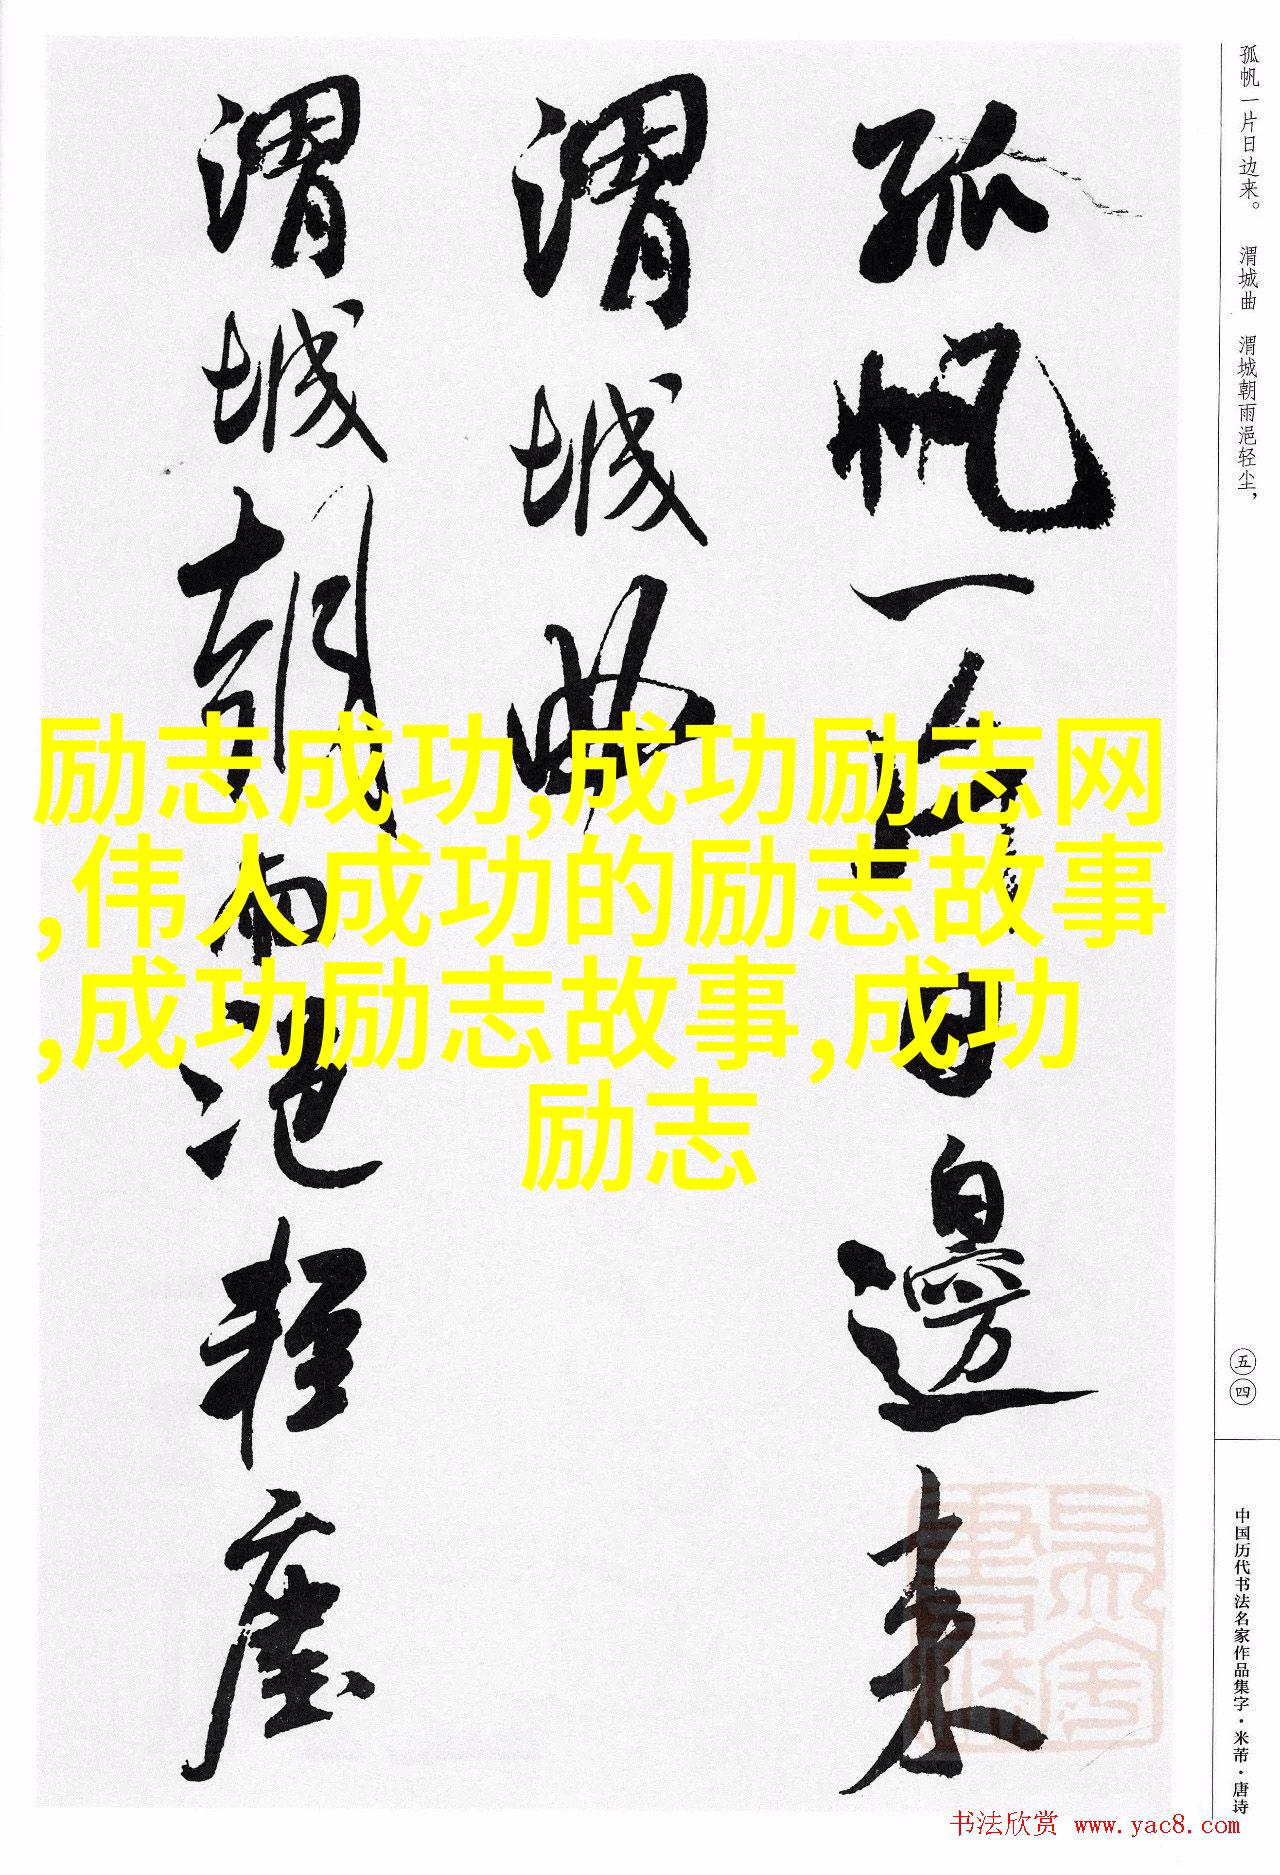 孤帆一片日边来。 渭城曲 渭城朝雨浥轻尘，
孤帆一片日邊来
渭城曲
渭城朝雨浥轻塵
励志成功,成功励志网
,伟人成功的励志故事
,成功励志故事,成功
励志
五四
中国历代书法名家作品集字·米芾·唐诗
书法欣赏 www.yac8.com